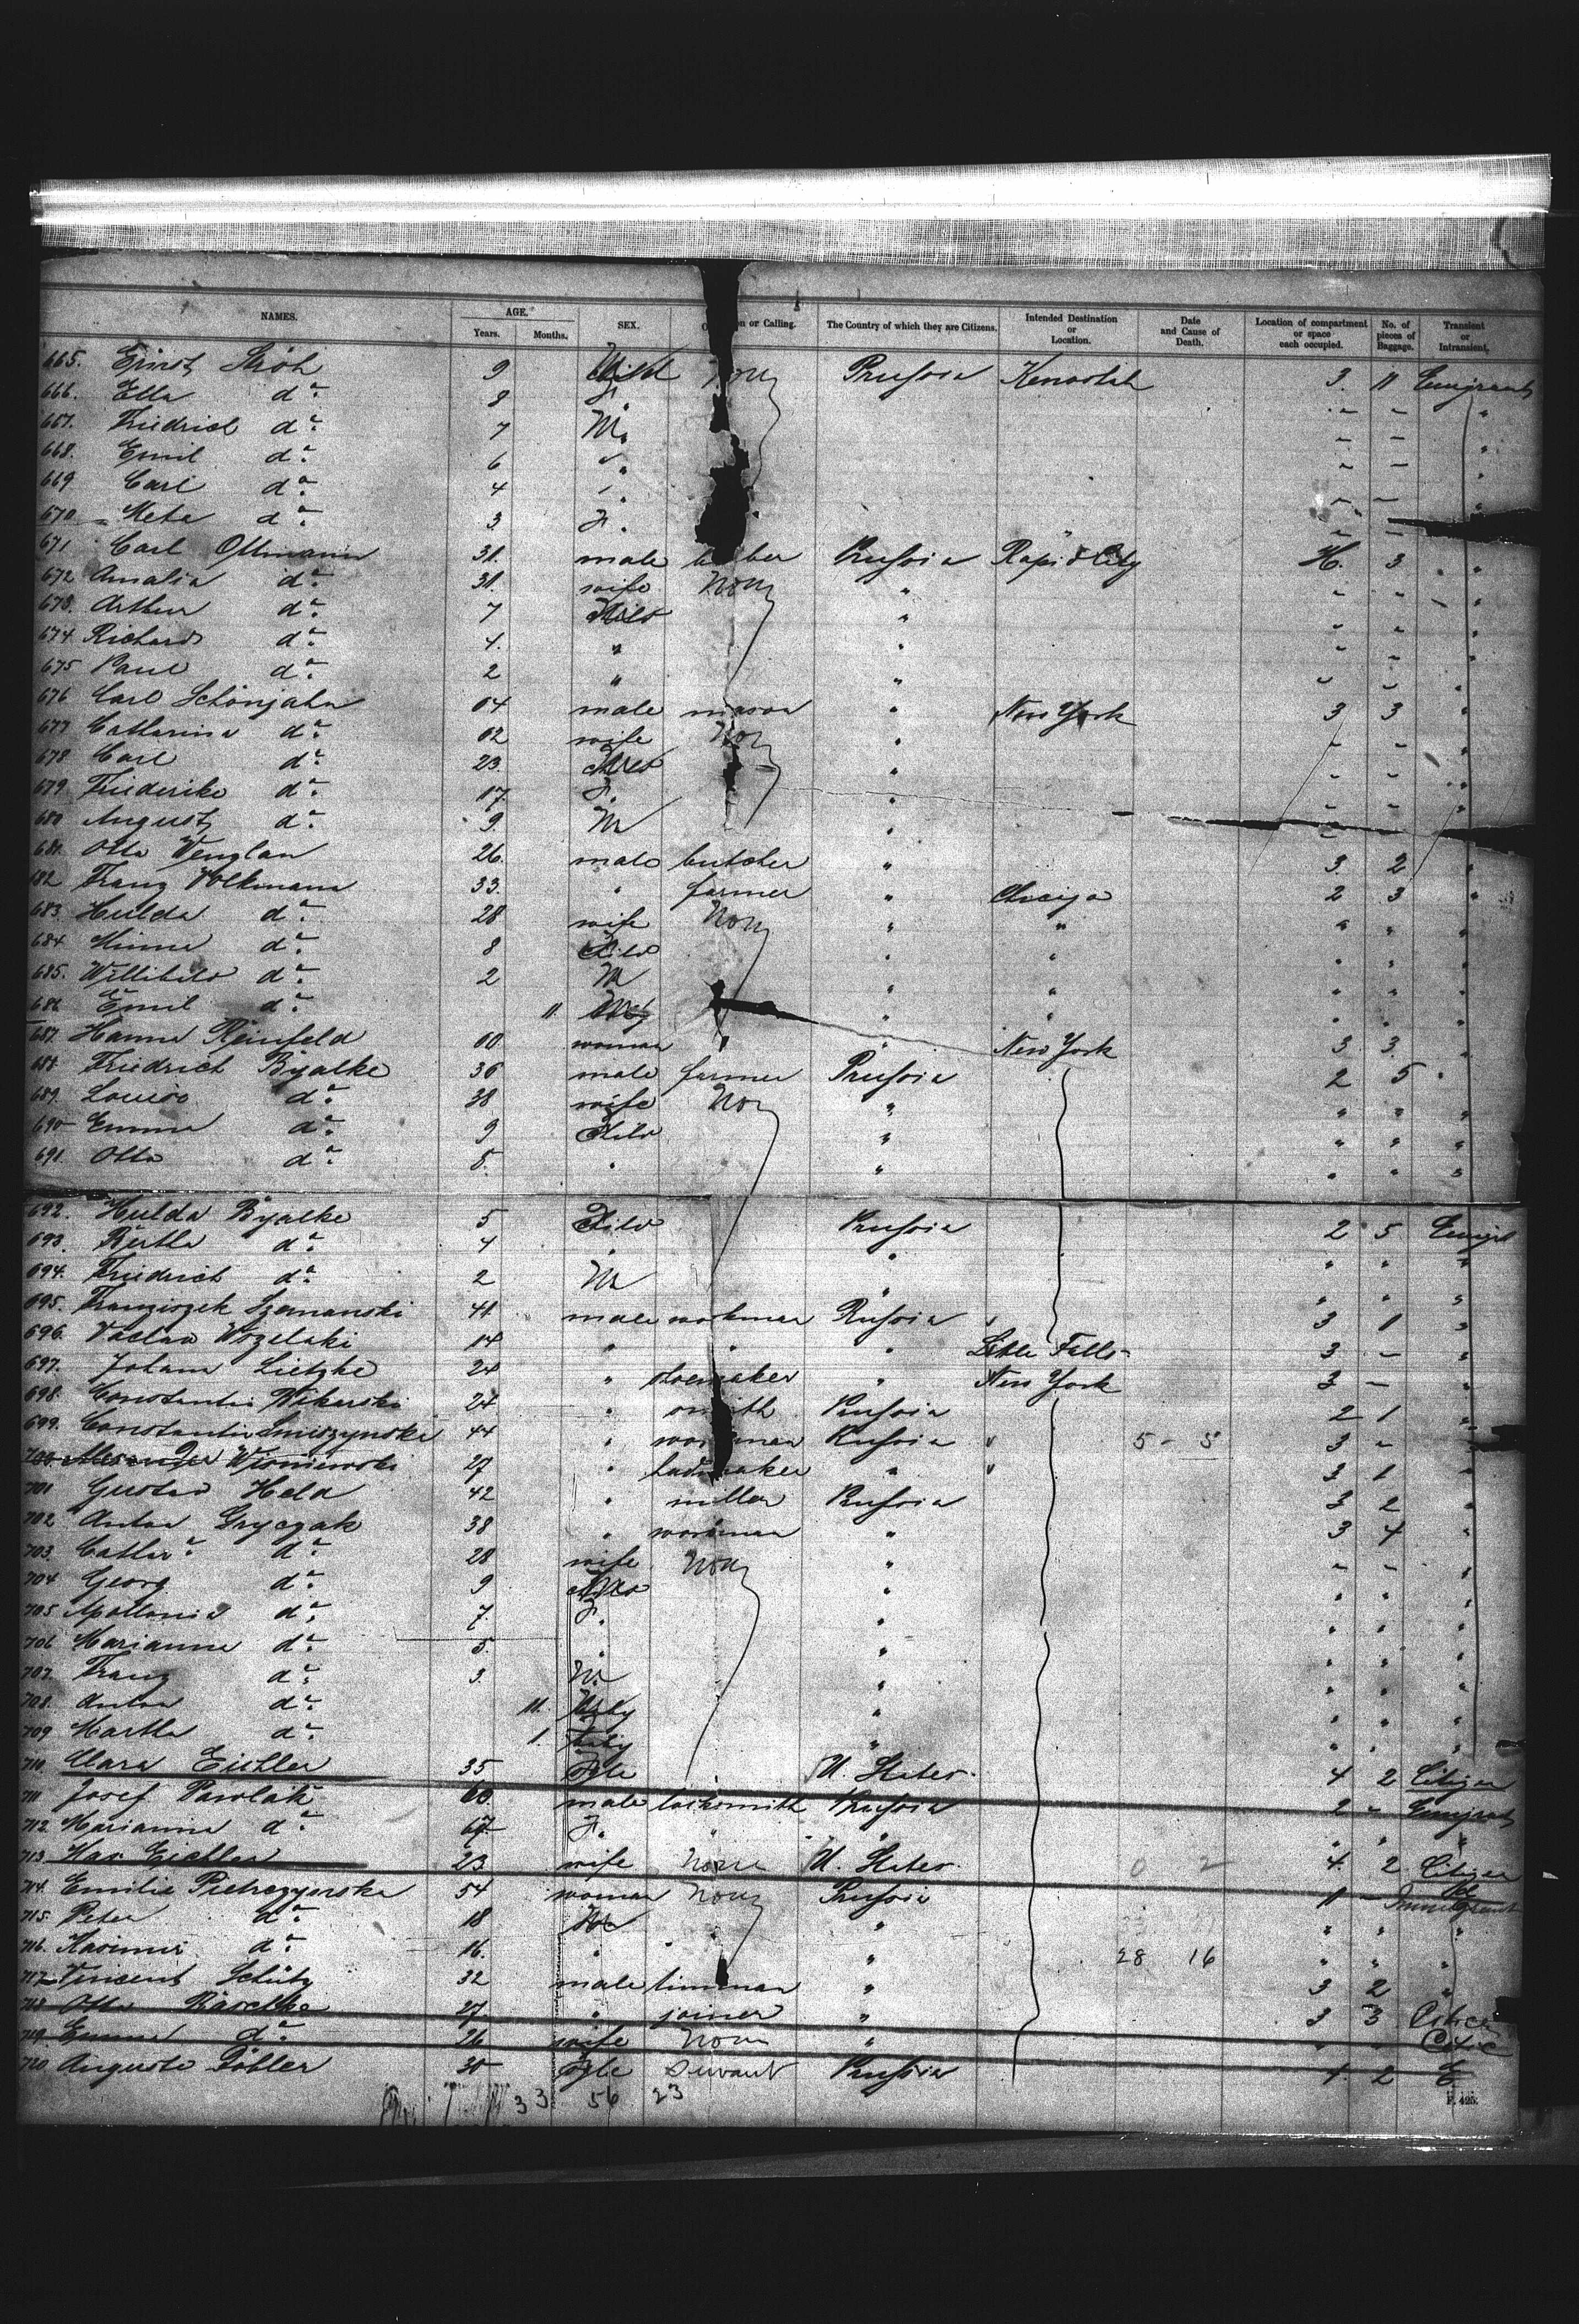 NAMES. AGE. Years. Months. SEX. on or Calling. The Country of which they are Citizens. Intended Destination or Location. Date and Cause of Death. Location of compartment or space each occupied. No. of pieces of Baggage. Transient or Intransient.
665. Ernst Ströh 9 Child None Prussia 3. 11 Emigrant
666. Ella do. 8 F. " - - "
667. Friedrich do. 7 M. - - "
668. Emil do. 6 " - - "
669 Carl do. 4 " - - "
670 Meta do. 3 F. " - -
671 Carl Ollmann 31. male Prussia Rapid City H. 3 "
672 Amalia do. 31. wife None " - - "
673. Arthur do. 7 Child " - - "
674 Richard do. 4. " " - - "
675 Paul do. 2 " " - - "
676 Carl Schönjahn 54 male mason " New York 3 3 "
677 Catharina do. 52 wife None " - - "
678 Carl do. 23. Child " - - "
679. Friederike do. 17. F. " - - "
680 August do. 9. M " - "
681. Otto Wenglan 26. male butcher " 3. 2 "
682 Franz Volkmann 33. " farmer " Chicago 2 3 "
683. Hulda do. 28 wife None " " " " "
684 Minna do. 8 Child " " " " "
685. Willibald do. 2 M " " " " "
686 Emil do. 11. " " " " "
687. Hanna Reinfeld 60 woman " New York 3 3. "
688 Friedrich Byalke 36 male farmer Prussia 2 5 "
689. Louise do. 38 wife None " " " "
690 Emma do. 9 Child " " " "
691. Otto do. 8. " " " " "
692. Hulda Byalke 5 Child Prussia 2 5 Emigt
693. Bertha do. 4 " " " " "
694. Friedrich do. 2 M " " " "
695. Franziszek Szemanski 41. male workman Russia " 3 1 "
696. Vaclaw Wozelaki 14 " " " Little Falls 3 - "
697. Johann Lietzke 24 " shoemaker " New York 3 - "
698. Constantin Wikerski 24 " smith Prussia 2 1 "
699. Constantin Smiszynski 44 " workman Russia " 5 - 5 3 - "
700 Alexander Wisniewski 27 " " " 3 1 "
701 Gustav Held 42 " miller Prussia 3 2 "
702 Anton Gryczak 38 " workman " 3 4 "
703. Cathar. do. 28 wife None " - - "
704 Georg do. 9 Child " " " "
705 Apollonia do. 7. F. " " " "
706 Marianne do. 5. " " " " "
707. Franz do. 3. M. " " " "
708. Anton do. 11. " " " "
709 Martha do. 1. baby " " " "
710 Clara Eichler 35 U. States. 4 2 Citizen
711 Josef Pawlak 60 male locksmith Prussia 2 - Emigrant
712. Marianna do. 67. F. " " " " "
713. Eichler 23 wife None U. States. 0 2 4. 2 Citizen
714. Emilie 54 woman None Prussia 11 - Immigrant
715. Peter do. 18 " " " "
716. Kasimir do. 16. " " 28 16 " " "
717 Vincent Schütz 32 male " 3 2 "
718 Otto Räschke 27. " joiner " 3 3 Citizen
719. Emma do. 26 wife None " " " Citic
720 Auguste Döbler 30 servant Prussia 4. 2 E
33 56 23
F. 425.